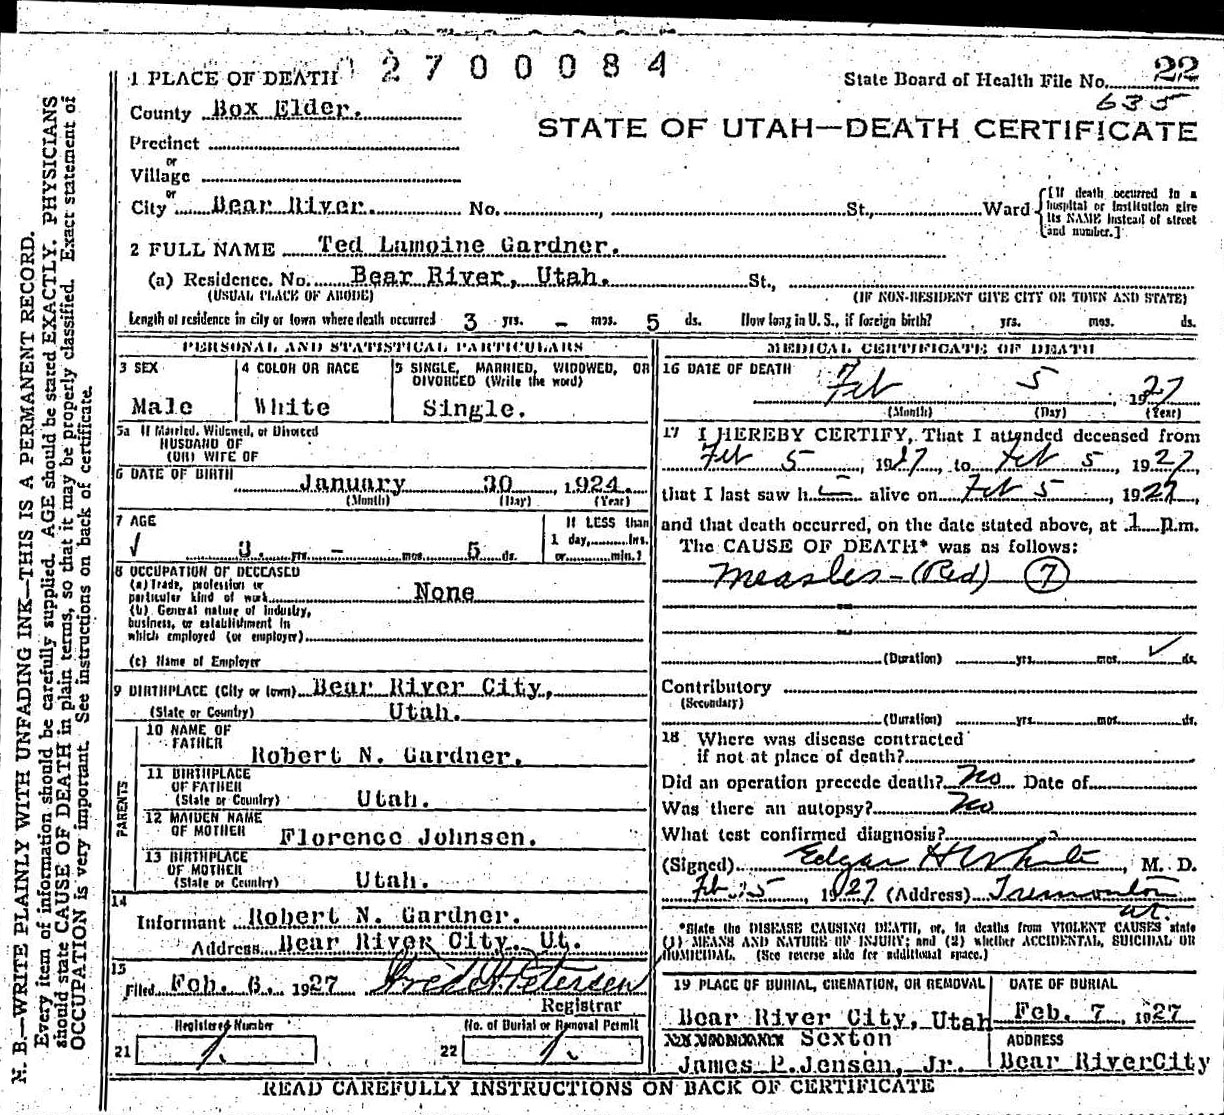 2700084
1 PLACE OF DEATH
State Board of Health File No. 22
635
County Box Elder.
STATE OF UTAH—DEATH CERTIFICATE
Precinct
or
Village
or
City Bear River. No. , St., Ward
{[If death occurred in a hospital or institution give its NAME instead of street and number.]
2 FULL NAME Ted Lamoine Gardner.
(a) Residence. No. Bear River, Utah. St.,
(USUAL PLACE OF ABODE) (IF NON-RESIDENT GIVE CITY OR TOWN AND STATE)
Length of residence in city or town where death occurred 3 yrs. – mos. 5 ds. How long in U.S., if foreign birth? yrs. mos. ds.
PERSONAL AND STATISTICAL PARTICULARS
3 SEX
Male
4 COLOR OR RACE
White
5 SINGLE, MARRIED, WIDOWED, OR
DIVORCED (Write the word)
Single.
5a If Married, Widowed, or Divorced
HUSBAND OF
(OR) WIFE OF
6 DATE OF BIRTH
January 30, 1924.
(Month) (Day) (Year)
7 AGE
3. yrs. – mos. 5 ds.
If LESS than
1 day, hrs.
or min.?
8 OCCUPATION OF DECEASED
(a) Trade, profession or
particular kind of work None
(b) General nature of industry,
business, or establishment in
which employed (or employer)
(c) Name of Employer
9 BIRTHPLACE (City or town) Bear River City,
(State or Country) Utah.
PARENTS
10 NAME OF
FATHER
Robert N. Gardner.
11 BIRTHPLACE
OF FATHER
(State or Country) Utah.
12 MAIDEN NAME
OF MOTHER Florence Johnsen.
13 BIRTHPLACE
OF MOTHER
(State or Country) Utah.
14
Informant Robert N. Gardner.
Address Bear River City. Ut.
15
Filed Feb. 6. 1927 Fred H. Petersen
Registrar
Registered Number
21 1
No. of Burial or Removal Permit
22 1
MEDICAL CERTIFICATE OF DEATH
16 DATE OF DEATH
Feb 5, 1927
(Month) (Day) (Year)
17 I HEREBY CERTIFY, That I attended deceased from
Feb 5, 1927, to Feb 5, 1927
that I last saw h im alive on Feb 5, 1927,
and that death occurred, on the date stated above, at 1 p.m.
The CAUSE OF DEATH* was as follows:
Measles – (Red) 7
(Duration) yrs. mos. ds.
Contributory
(Secondary)
(Duration) yrs. mos. ds.
18 Where was disease contracted
if not at place of death?
Did an operation precede death? No Date of
Was there an autopsy? No
What test confirmed diagnosis?
(Signed) Edgar H White, M. D.
Feb 5, 1927 (Address) Tremonton
Ut.
*State the DISEASE CAUSING DEATH, or, in deaths from VIOLENT CAUSES state
(1) MEANS AND NATURE OF INJURY; and (2) whether ACCIDENTAL, SUICIDAL OR
HOMICIDAL. (See reverse side for additional space.)
19 PLACE OF BURIAL, CREMATION, OR REMOVAL
Bear River City, Utah
DATE OF BURIAL
Feb. 7, 1927
Sexton
James P.Jensen, Jr.
ADDRESS
Bear RiverCity
READ CAREFULLY INSTRUCTIONS ON BACK OF CERTIFICATE
N. B.—WRITE PLAINLY WITH UNFADING INK—THIS IS A PERMANENT RECORD.
Every item of information should be carefully supplied. AGE should be stated EXACTLY. PHYSICIANS
should state CAUSE OF DEATH in plain terms, so that it may be properly classified. Exact statement of
OCCUPATION is very important. See instructions on back of certificate.